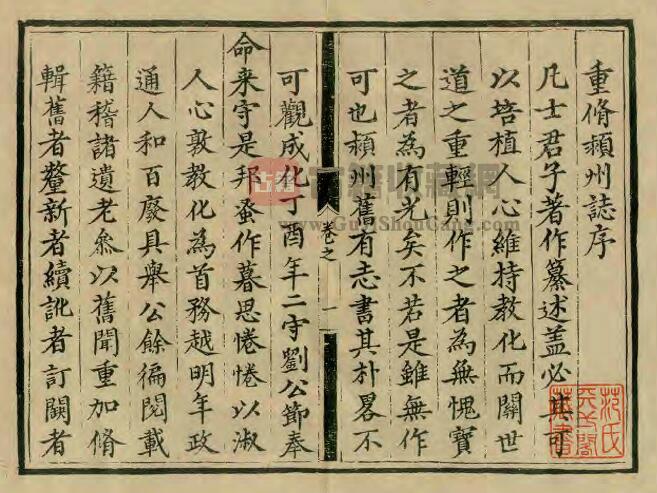 重脩頴州誌序
凡士君子著作纂述盖必其可
以培植人心維持教化而關世
道之重輕則作之者為無愧寶
之者為有光矣不若是雖無作
可也頴州舊有志書其朴畧不
卷之 一
可觀成化丁酉年二守劉公節奉
命来守是邦蚤作暮思惓惓以淑
人心敦教化為首務越明年政
通人和百廢具舉公餘徧閱載
籍稽諸遺老叅以舊聞重加脩
輯舊者釐新者續訛者訂闕者
范氏
天一閣
藏書
古籍
古籍收藏网
www.GuJiShouCang.com